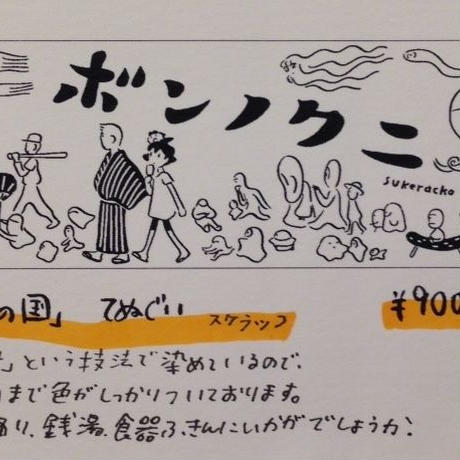 ボンノクニ
sukeracko
の国」 てぬぐい スケラッコ ¥900
」という技法で染めているので、
まで色がしっかりついております。
り、銭湯、食器ふきんにいかがでしょうか?